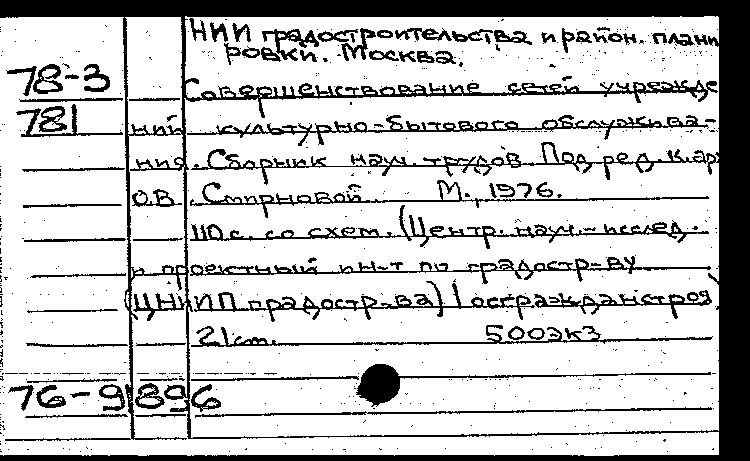 НИИ градостроительства и район. плани
ровки. Москва.
78-3
Совершенствование сетей учрежде
781
ний культурно-бытового обслужива-
ния. Сборник науч. трудов. Под ред. к.ар
О.В. Смирновой М., 1976.
110 с. со схем. (Центр. науч.-исслед.
и проектный ин-т по градостр-ву
(ЦНИИП градостр-ва) Госгражданстроя)
21 см. 500 экз
76-91896